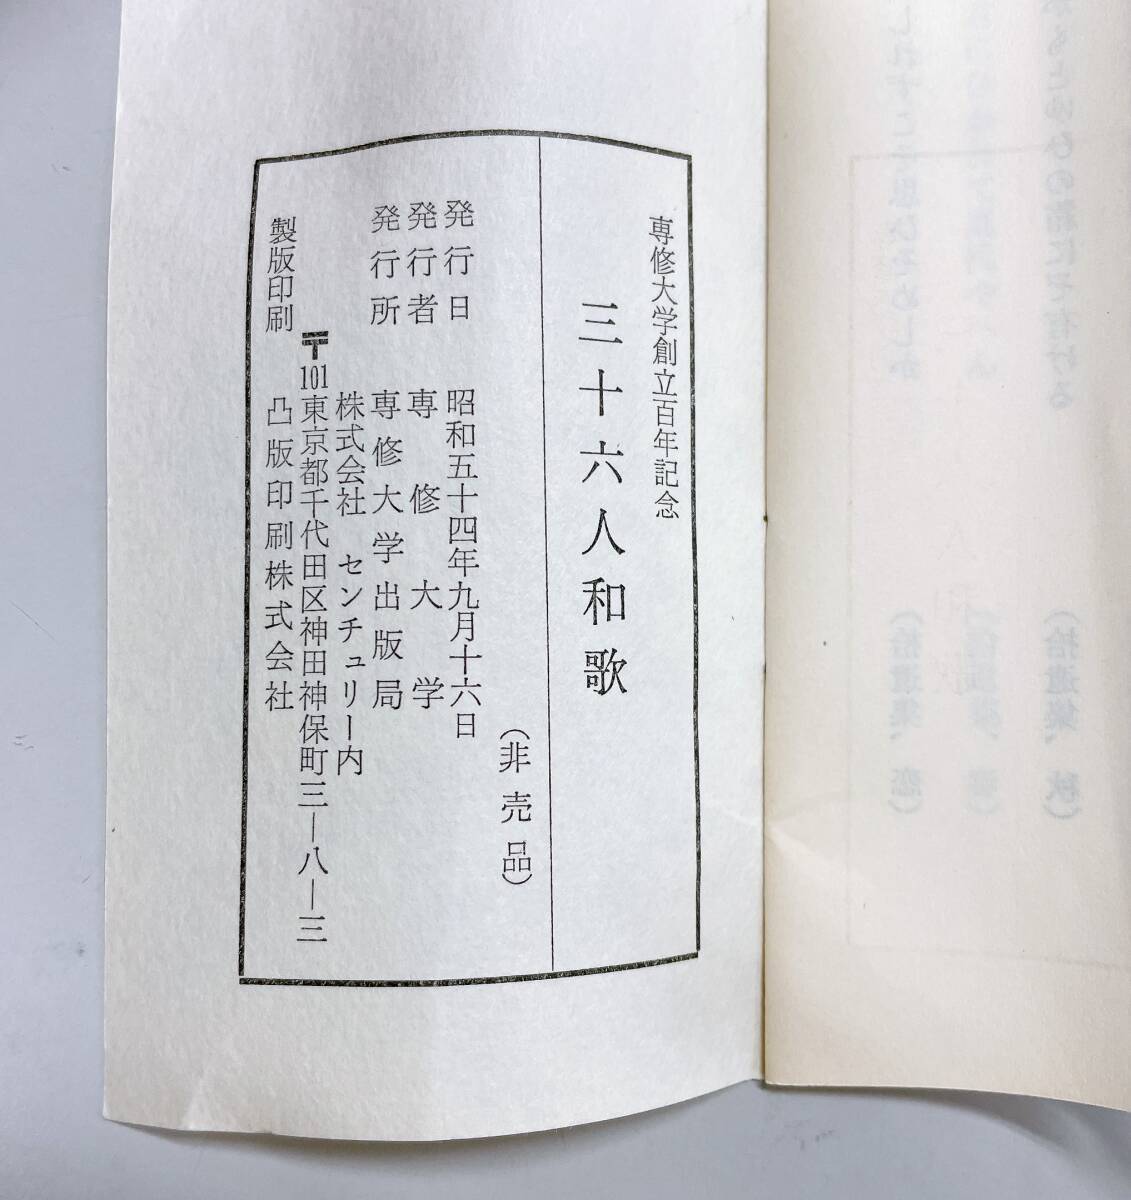 専修大学創立百年記念
三十六人和歌
(非売品)
発行日 昭和五十四年九月十六日
発行者 専修大学
発行所 専修大学出版局
株式会社 センチュリー内
〒101東京都千代田区神田神保町三―八―三
製版印刷 凸版印刷株式会社